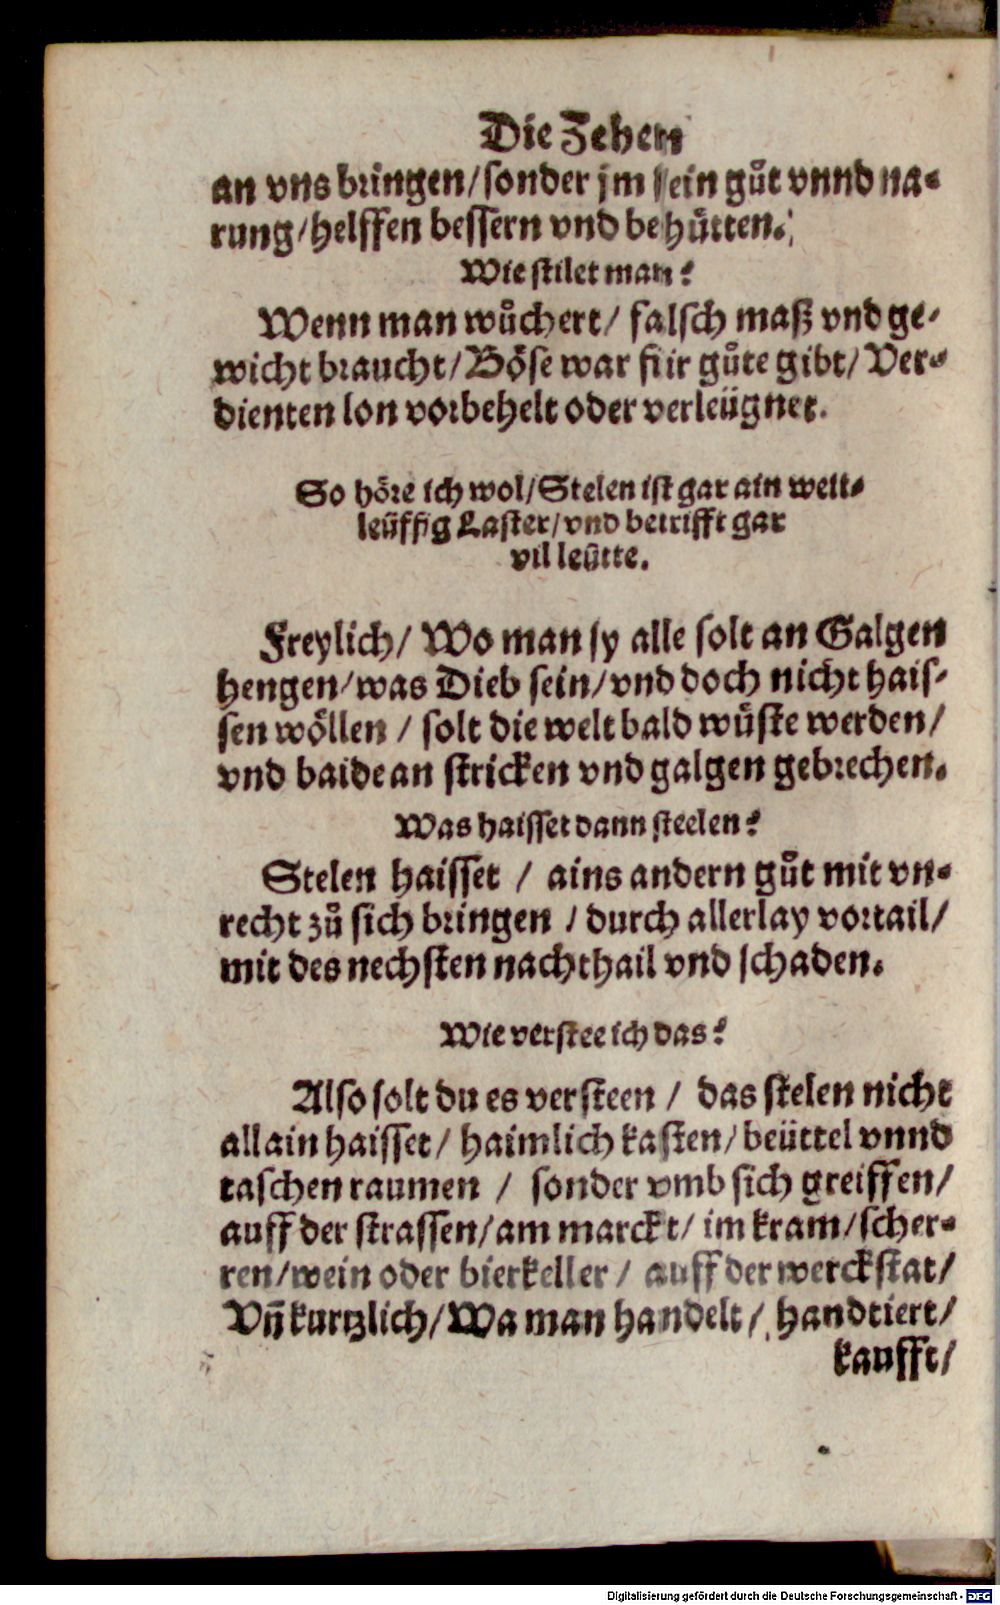 Die Zehen
an vns bringen/sonder jm sein gůt vnnd na-
rung/helffen bessern vnd behütten.
Wie stilet man?
Wenn man wůchert/ falsch maß vnd ge-
wicht braucht/Böse war für gůte gibt/ Ver-
dienten lon vorbehelt oder verleügnet.
So höre ich wol/Stelen ist gar ain weit-
leüffig Laster/vnd betrifft gar
vil leütte.
Freylich/ Wo man sy alle solt an Galgen
hengen/was Dieb sein/vnd doch nicht hais-
sen wöllen / solt die welt bald wůste werden/
vnd baide an stricken vnd galgen gebrechen.
Was haisset dann steelen?
Stelen haisset / ains andern gůt mit vn-
recht zů sich bringen / durch allerlay vortail/
mit des nechsten nachthail vnd schaden.
Wie verstee ich das?
Also solt du es versteen / das stelen nicht
allain haisset/ haimlich kasten/beüttel vnnd
taschen raumen / sonder vmb sich greiffen/
auff der strassen/am marckt/ im kram/scher-
ren/wein oder bierkeller / auff der werckstat/
Vñ kurtzlich/Wa man handelt/ handtiert/
kaufft/
Digitalisierung gefördert durch die Deutsche Forschungsgemeinschaft - DFG